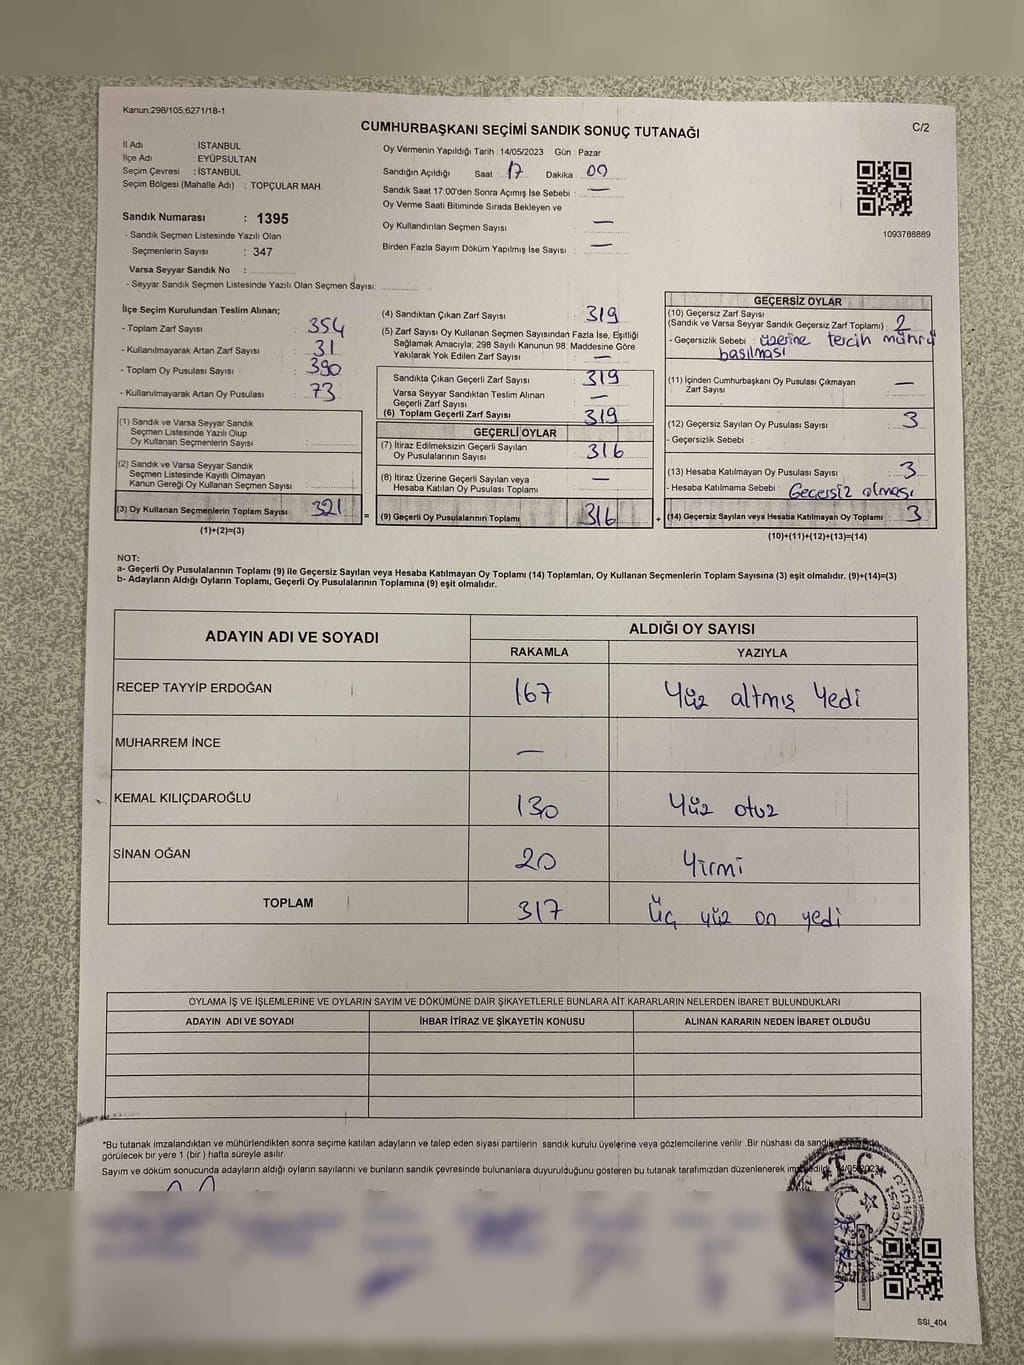 Kanun:298/105,6271/18-1
C/2
CUMHURBAŞKANI SEÇİMİ SANDIK SONUÇ TUTANAĞI
İl Adı : İSTANBUL
İlçe Adı : EYÜPSULTAN
Seçim Çevresi : İSTANBUL
Seçim Bölgesi (Mahalle Adı) : TOPÇULAR MAH.
Sandık Numarası : 1395
- Sandık Seçmen Listesinde Yazılı Olan
Seçmenlerin Sayısı : 347
Varsa Seyyar Sandık No :
- Seyyar Sandık Seçmen Listesinde Yazılı Olan Seçmen Sayısı:
Oy Vermenin Yapıldığı Tarih : 14/05/2023 Gün : Pazar
Sandığın Açıldığı Saat : 17 Dakika : 00
Sandık Saat 17:00'den Sonra Açımış İse Sebebi : —
Oy Verme Saati Bitiminde Sırada Bekleyen ve
Oy Kullandırılan Seçmen Sayısı : —
Birden Fazla Sayım Döküm Yapılmış İse Sayısı : —
1093788889
İlçe Seçim Kurulundan Teslim Alınan;
- Toplam Zarf Sayısı : 354
- Kullanılmayarak Artan Zarf Sayısı : 31
- Toplam Oy Pusulası Sayısı : 390
- Kullanılmayarak Artan Oy Pusulası : 73
(1) Sandık ve Varsa Seyyar Sandık
Seçmen Listesinde Yazılı Olup
Oy Kullanan Seçmenlerin Sayısı :
(2) Sandık ve Varsa Seyyar Sandık
Seçmen Listesinde Kayıtlı Olmayan
Kanun Gereği Oy Kullanan Seçmen Sayısı :
(3) Oy Kullanan Seçmenlerin Toplam Sayısı : 321
(1)+(2)=(3)
(4) Sandıktan Çıkan Zarf Sayısı : 319
(5) Zarf Sayısı Oy Kullanan Seçmen Sayısından Fazla İse, Eşitliği
Sağlamak Amacıyla; 298 Sayılı Kanunun 98. Maddesine Göre
Yakılarak Yok Edilen Zarf Sayısı : —
Sandıkta Çıkan Geçerli Zarf Sayısı : 319
Varsa Seyyar Sandıktan Teslim Alınan
Geçerli Zarf Sayısı : —
(6) Toplam Geçerli Zarf Sayısı : 319
GEÇERLİ OYLAR
(7) İtiraz Edilmeksizin Geçerli Sayılan
Oy Pusulalarının Sayısı : 316
(8) İtiraz Üzerine Geçerli Sayılan veya
Hesaba Katılan Oy Pusulası Toplamı : —
= (9) Geçerli Oy Pusulalarının Toplamı : 316
GEÇERSİZ OYLAR
(10) Geçersiz Zarf Sayısı
(Sandık ve Varsa Seyyar Sandık Geçersiz Zarf Toplamı) : 2
- Geçersizlik Sebebi : üzerine tercih mührü
basılması
(11) İçinden Cumhurbaşkanı Oy Pusulası Çıkmayan
Zarf Sayısı : —
(12) Geçersiz Sayılan Oy Pusulası Sayısı : 3
- Geçersizlik Sebebi :
(13) Hesaba Katılmayan Oy Pusulası Sayısı : 3
- Hesaba Katılmama Sebebi : Geçersiz olması
+ (14) Geçersiz Sayılan veya Hesaba Katılmayan Oy Toplamı : 3
(10)+(11)+(12)+(13)=(14)
NOT:
a- Geçerli Oy Pusulalarının Toplamı (9) ile Geçersiz Sayılan veya Hesaba Katılmayan Oy Toplamı (14) Toplamları, Oy Kullanan Seçmenlerin Toplam Sayısına (3) eşit olmalıdır. (9)+(14)=(3)
b- Adayların Aldığı Oyların Toplamı, Geçerli Oy Pusulalarının Toplamına (9) eşit olmalıdır.
ADAYIN ADI VE SOYADI ALDIĞI OY SAYISI
RAKAMLA YAZIYLA
RECEP TAYYİP ERDOĞAN 167 Yüz altmış Yedi
MUHARREM İNCE —
KEMAL KILIÇDAROĞLU 130 Yüz otuz
SİNAN OĞAN 20 Yirmi
TOPLAM 317 Üç yüz on yedi
OYLAMA İŞ VE İŞLEMLERİNE VE OYLARIN SAYIM VE DÖKÜMÜNE DAİR ŞİKAYETLERLE BUNLARA AİT KARARLARIN NELERDEN İBARET BULUNDUKLARI
ADAYIN ADI VE SOYADI İHBAR İTİRAZ VE ŞİKAYETİN KONUSU ALINAN KARARIN NEDEN İBARET OLDUĞU
*Bu tutanak imzalandıktan ve mühürlendikten sonra seçime katılan adayların ve talep eden siyasi partilerin sandık kurulu üyelerine veya gözlemcilerine verilir. Bir nüshası da
görülecek bir yere 1 (bir ) hafta süreyle asılır.
Sayım ve döküm sonucunda adayların aldığı oyların sayılarını ve bunların sandık çevresinde bulunanlara duyurulduğunu gösteren bu tutanak tarafımızdan düzenlenerek
T.C.
SSI_404